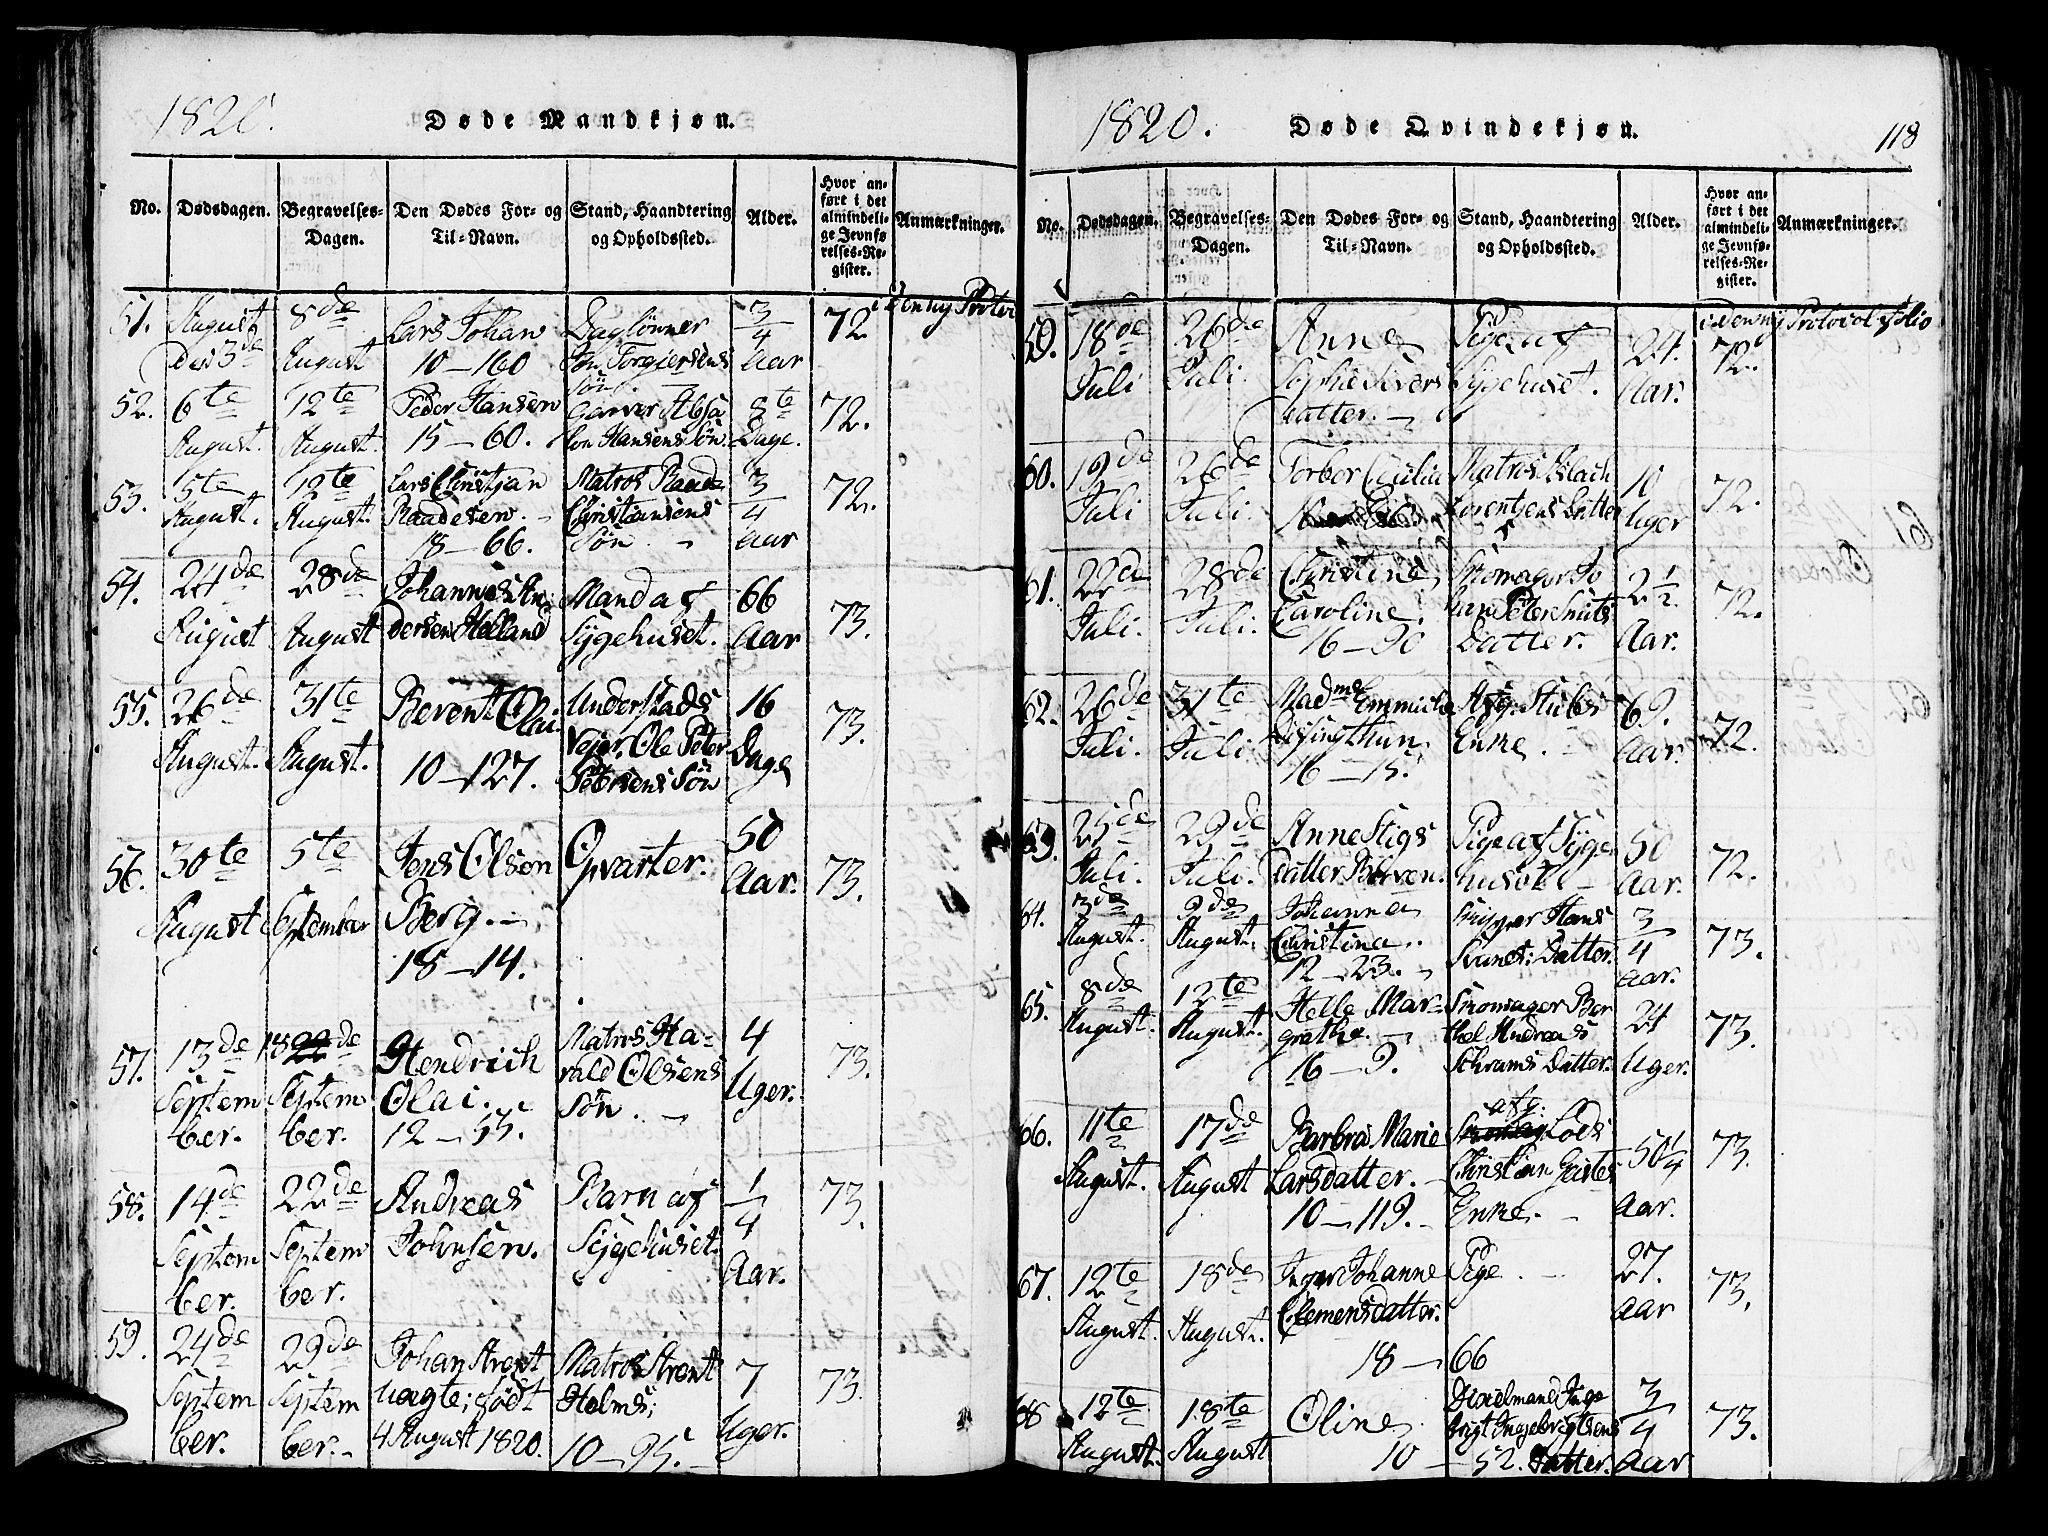 1820.
Døde Mandkjøn.
No.
Dødsdagen.
Begravelses-
Dagen.
Den Dødes For- og
Til-Navn.
Stand, Haandtering
og Opholdssted.
Alder.
Hvor an-
ført i det
almindeli-
ge Jevnfø-
relses-Re-
gister.
Anmærkninger.
51.
August
Den 3de
8de
August
Lars Johan
10 — 160
Daglønner
Torgiersens
Søn.
3/4
Aar
72
52.
6te
August.
12te
August.
Peder Hansen
15 — 60.
Garver Absa
lon Hansens Søn.
8te
Dage.
72.
53.
5te
August.
12te
August.
Lars Christian
Raadesen.
18 — 66.
Matros Raade
Christiansens
Søn.
3/4
Aar
72.
54.
24de
August
28de
August
Johannes An-
dersen Helland
Mand af
Sygehuset.
66
Aar
73.
55.
26de
August.
31te
August.
Berent Olai.
10 — 127.
Understads
Vejer Ole Peter
Petersens Søn
16
Dage
73.
56.
30te
August
5te
September
Jens Olsen
Berg.
18 — 14.
Qvarter.
50
Aar.
73.
57.
13de
Septem
ber.
18de
Septem
ber.
Hendrich
Olai.
12 — 55.
Matros Ha-
rald Olsens
Søn.
4
Uger.
73.
58.
14de
Septem
ber.
22de
Septem
ber.
Andreas
Johnsen.
Barn af
Sygehuset.
1/4
Aar.
73.
59.
24de
Septem
ber.
29de
Septem
ber.
Johan Arent
Vogte; født
4 August 1820.
Matros Arent
Holms;
10 — 95.
7
Uger.
73.
1820.
Døde Qvindekjøn.
118
No.
Dødsdagen.
Begravelses-
Dagen.
Den Dødes For- og
Til-Navn.
Stand, Haandtering
og Opholdssted.
Alder.
Hvor an-
ført i det
almindeli-
ge Jevnfø-
relses-Re-
gister.
Anmærkninger.
i den ny Protocol Folio
59.
18de
Juli
26de
Juli.
Anne
Sophie Sivers
Datter.
Pige af
Sygehuset.
24.
Aar.
72.
60.
19de
Juli
26de
Juli.
Torbor Cecilia
Matros Aslach
Lorentzens Datter
10
Uger
72.
61.
22de
Juli.
28de
Juli.
Christine
Caroline.
16 — 90
Skomager Jo
han Peter Smits
Datter.
2 1/2
Aar.
72.
62.
26de
Juli.
31te
Juli.
Madme Emmiche
16 — 15.
Afg. Stubs
Enke.
69.
Aar.
72.
63.
25de
Juli.
29de
Juli.
Anne Stigs
Datter
Pige af Syge
huset
50
Aar.
72.
64.
3de
August.
9de
August.
Johanne
Christina.
12 — 23.
Skipper Hans
Datter.
3/4
Aar.
73.
65.
8de
August.
12te
August.
Helle Mar-
grethe.
16 — 9.
Skomager Ber
thel Andreas
Schrams Datter.
24
Uger.
73.
66.
11te
August.
17de
August
Barbra Marie
Larsdatter.
10 — 119.
afg:
Lods
Christian
Enke.
50 1/4
Aar.
73.
67.
12te
August.
18de
August.
Inger Johanne
Clemensdatter.
18 — 66
Pige.
27.
Aar
73.
68
12te
August.
18te
August
Oline
10 — 52.
Inge
brigt Ingebrigtsens
Datter.
3/4
Aar
73.